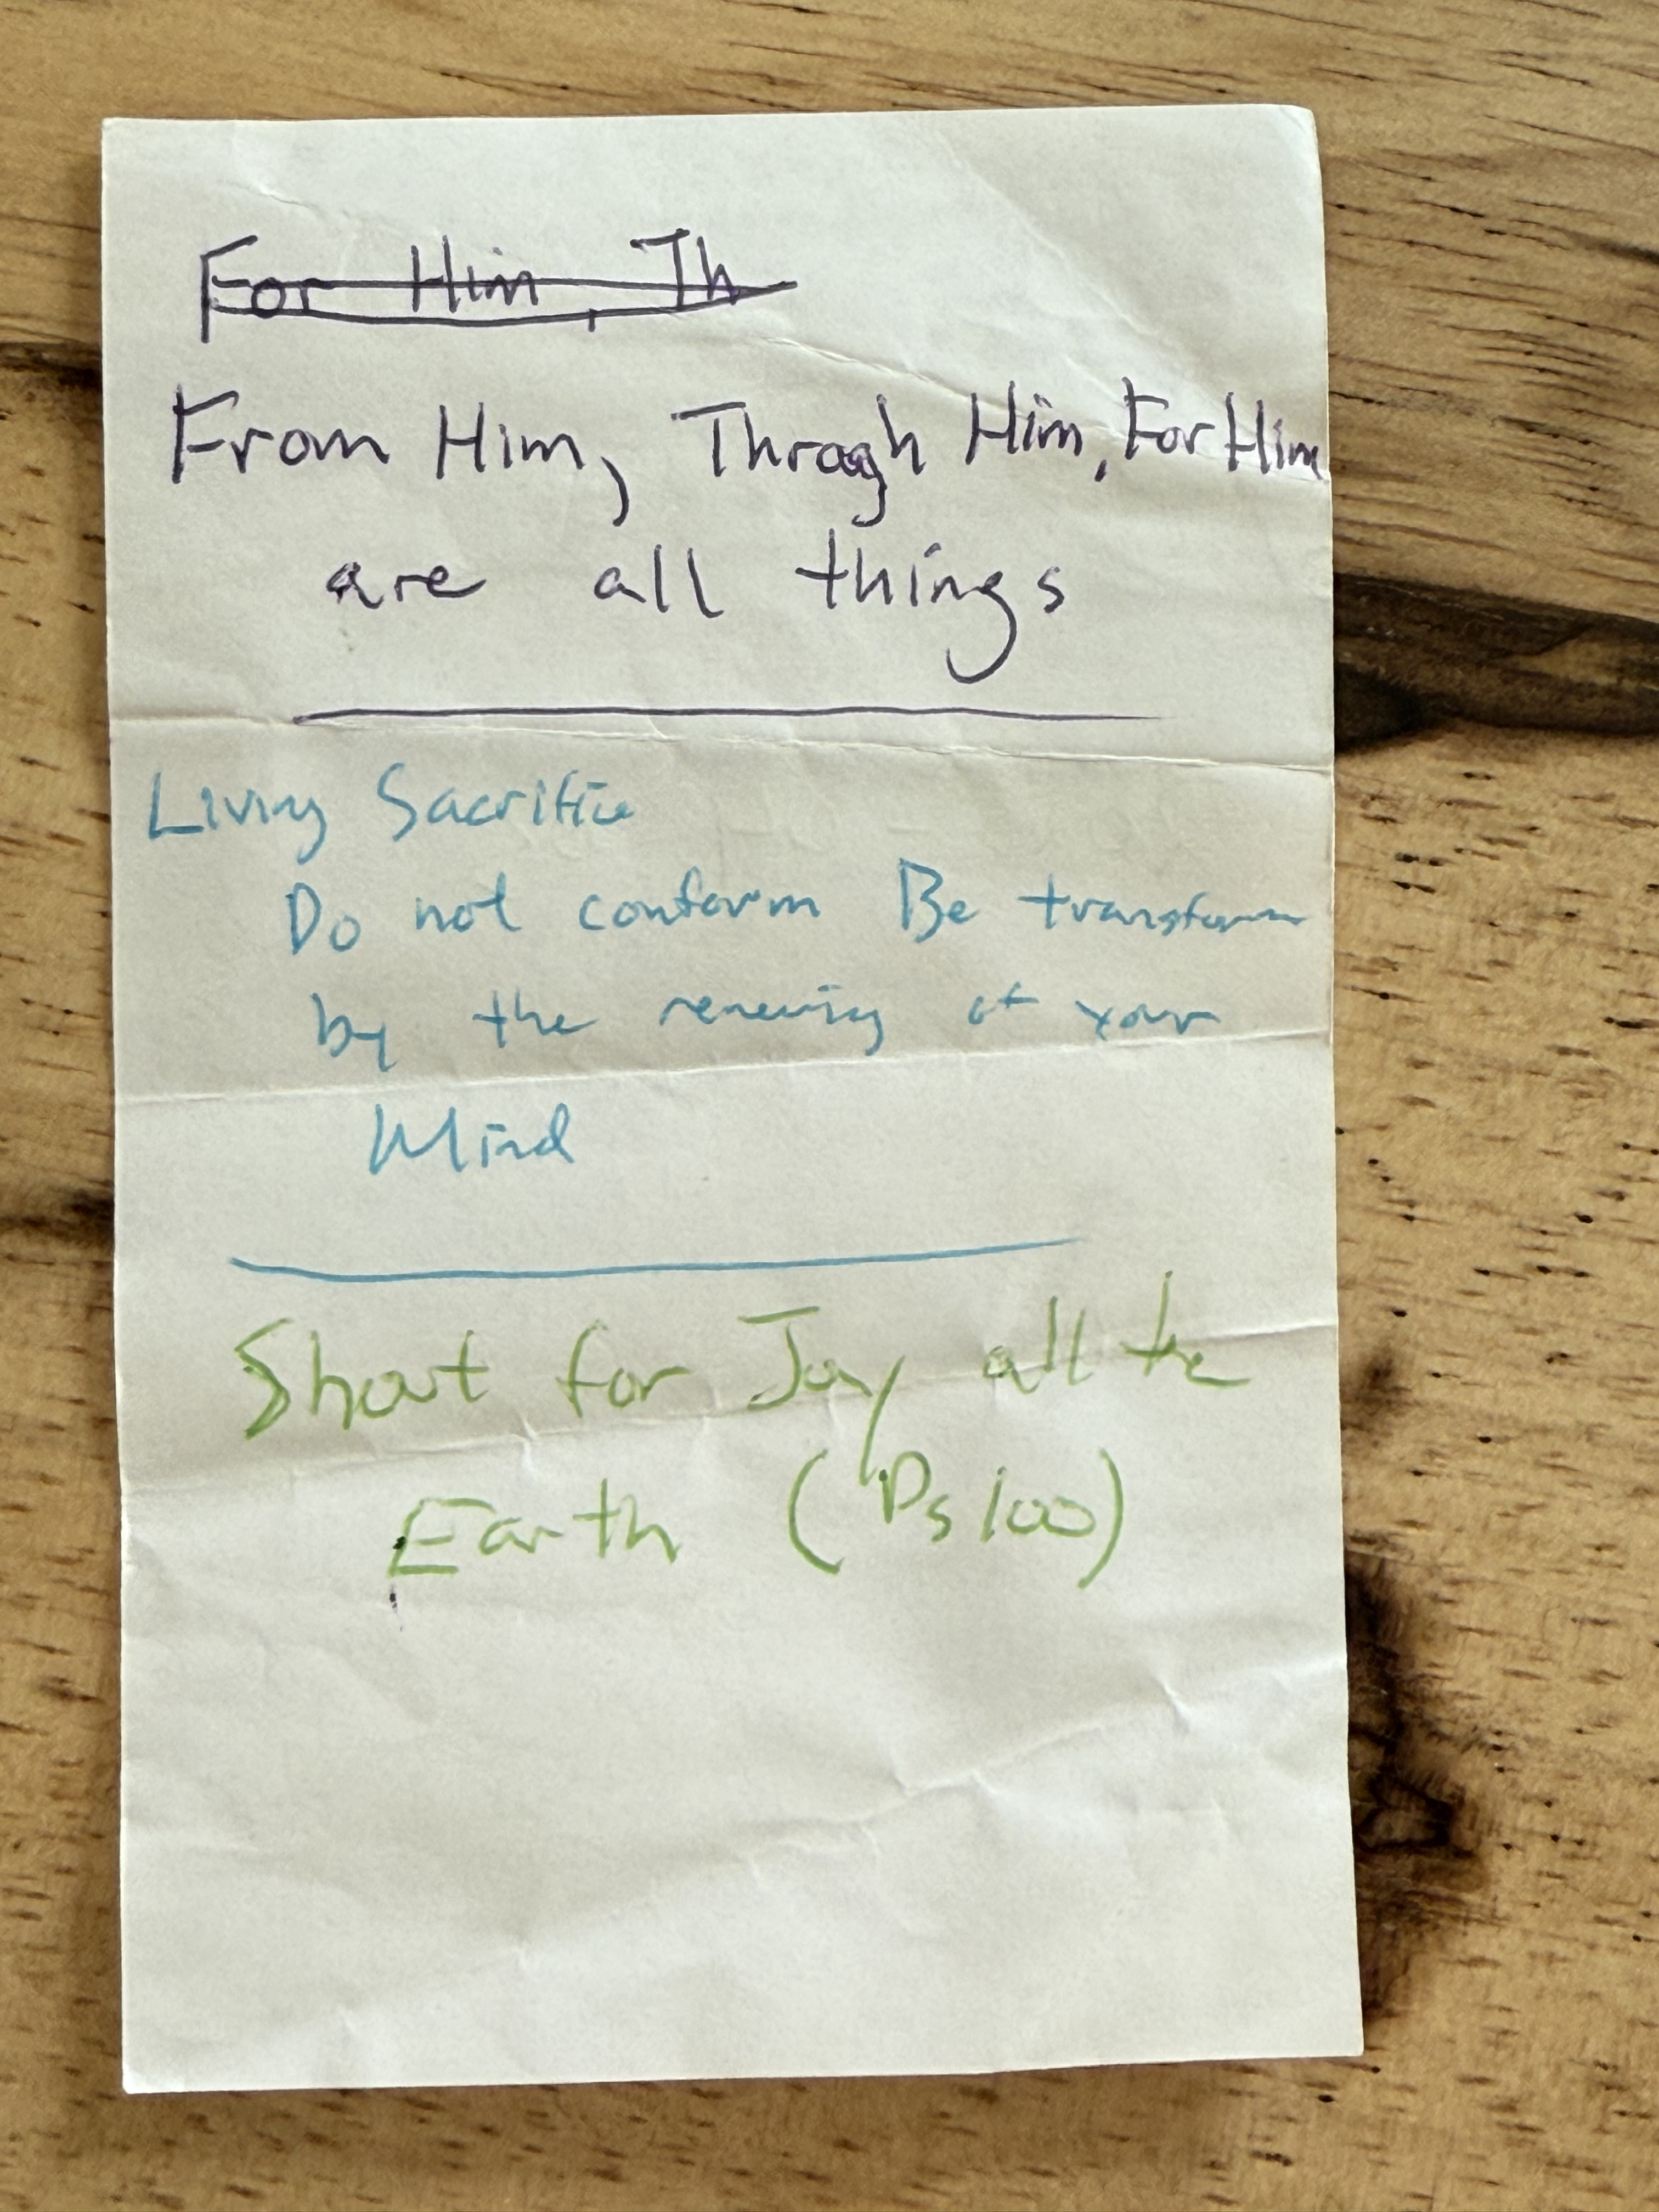 For Him, Th
From Him, Through Him, For Him
are all things
Living Sacrifice
Do not conform Be transform
by the renewing of your
Mind
Shout for Joy all the
Earth (Ps 100)